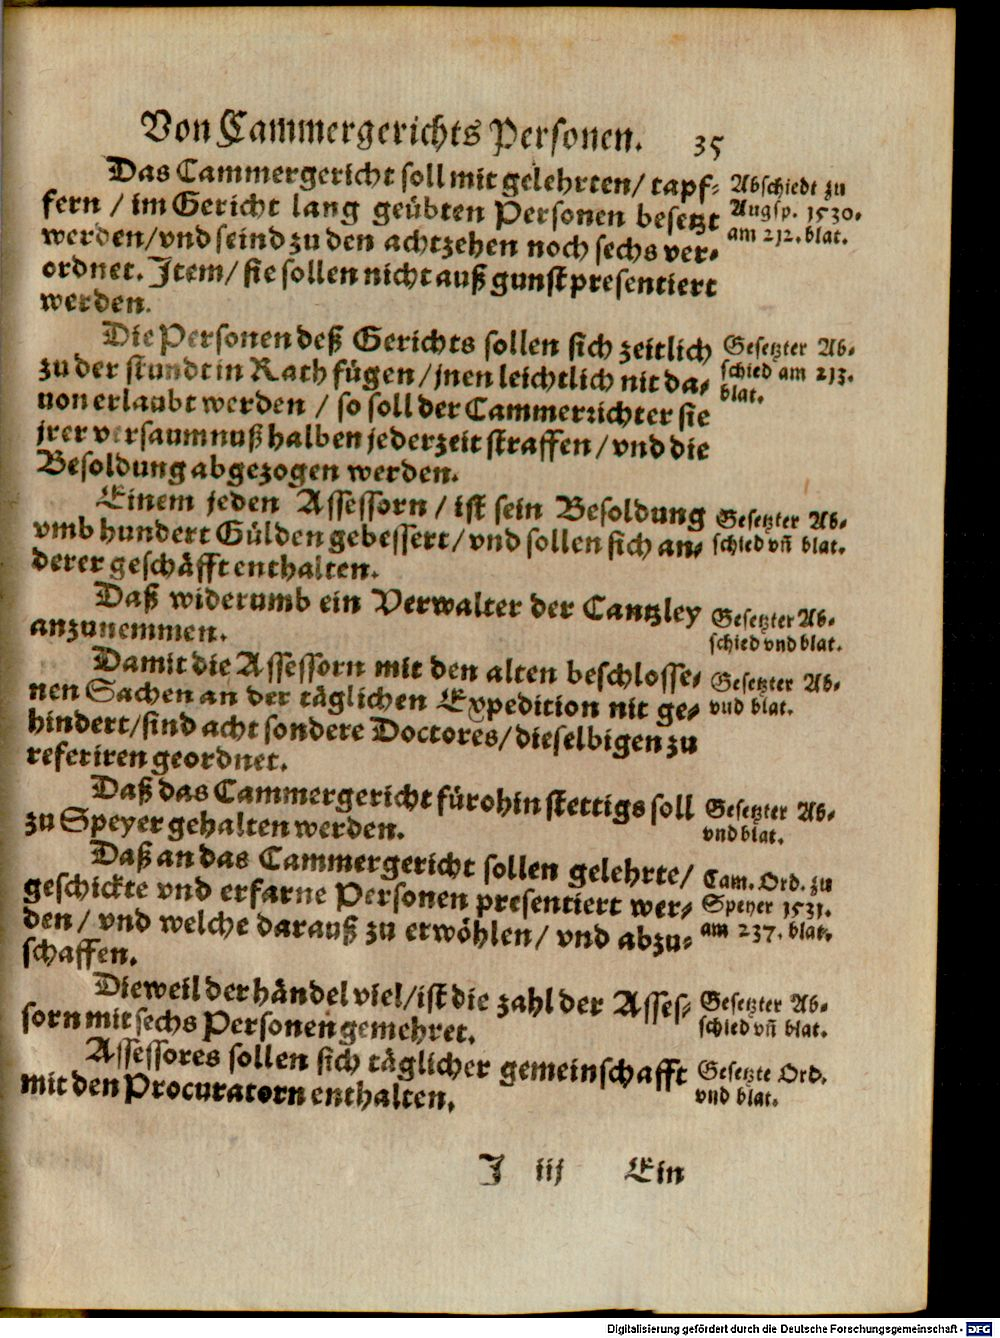 Von Cammergerichts Personen. 35
Das Cammergericht soll mit gelehrten/ tapf-
fern / im Gericht lang geübten Personen besetzt
werden/vnd seind zu den achtzehen noch sechs ver-
ordnet. Item/ sie sollen nicht auß gunst presentiert
werden.
Abschiedt zu
Augsp. 1530.
am 212. blat.
Die Personen deß Gerichts sollen sich zeitlich
zu der stundt in Rath fügen/jnen leichtlich nit da-
uon erlaubt werden / so soll der Cammerrichter sie
jrer versaumnuß halben jederzeit straffen/vnd die
Besoldung abgezogen werden.
Gesetzter Ab-
schied am 213.
blat.
Einem jeden Assessorn / ist sein Besoldung
vmb hundert Gülden gebessert/vnd sollen sich an-
derer geschäfft enthalten.
Gesetzter Ab-
schied vñ blat.
Daß widerumb ein Verwalter der Cantzley
anzunemmen.
Gesetzter Ab-
schied vnd blat.
Damit die Assessorn mit den alten beschlosse-
nen Sachen an der täglichen Expedition nit ge-
hindert/sind acht sondere Doctores/dieselbigen zu
referiren geordnet.
Gesetzter Ab-
vnd blat.
Daß das Cammergericht fürohin stettigs soll
zu Speyer gehalten werden.
Gesetzter Ab-
vnd blat.
Daß an das Cammergericht sollen gelehrte/
geschickte vnd erfarne Personen presentiert wer-
den/ vnd welche darauß zu erwöhlen/ vnd abzu-
schaffen.
Cam. Ord. zu
Speyer 1531.
am 237. blat.
Dieweil der händel viel/ist die zahl der Asses-
sorn mit sechs Personen gemehret.
Gesetzter Ab-
schied vñ blat.
Assessores sollen sich täglicher gemeinschafft
mit den Procuratorn enthalten.
Gesetzte Ord.
vnd blat.
J iij Ein
Digitalisierung gefördert durch die Deutsche Forschungsgemeinschaft - DFG